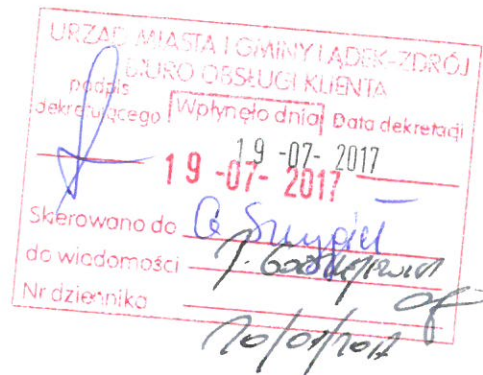 URZĄD MIASTA I GMINY LĄDEK-ZDRÓJ
BIURO OBSŁUGI KLIENTA
podpis
dekretującego Wpłynęło dnia Data dekretacji
19 -07- 2017
19 -07- 2017
Skierowano do
do wiadomości
Nr dziennika